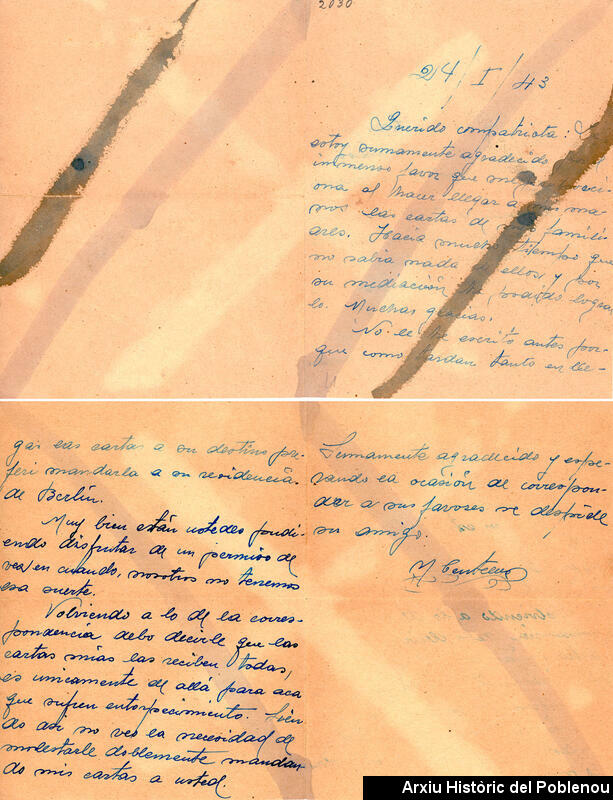 2030
24/I/43
Querido compatriota:
estoy sumamente agradecido
inmenso favor que me
ona al hacer llegar a mis ma
nos las cartas de mis famili
ares. Hacía mucho tiempo que
no sabía nada de ellos y por
su mediación he podido logear
lo. Muchas gracias.
No le he escrito antes por-
que como tardan tanto en lle-
gar las cartas a su destino pre
ferí mandarla a su residencia
de Berlín.
Muy bien están ustedes pudi-
endo disfrutar de un permiso de
vez en cuando, nosotros no tenemos
esa suerte.
Volviendo a lo de la corres-
pondencia debo decirle que las
cartas mías las reciben todas,
es unicamente de allá para aca
que sufren entorpecimiento. Sien
do asi no veo la necesidad de
molestarle doblemente mandan
do mis cartas a usted.
Sumamente agradecido y espe-
rando la ocasión de correspon-
der a sus favores se despide
su amigo.
M Centeno
Arxiu Històric del Poblenou